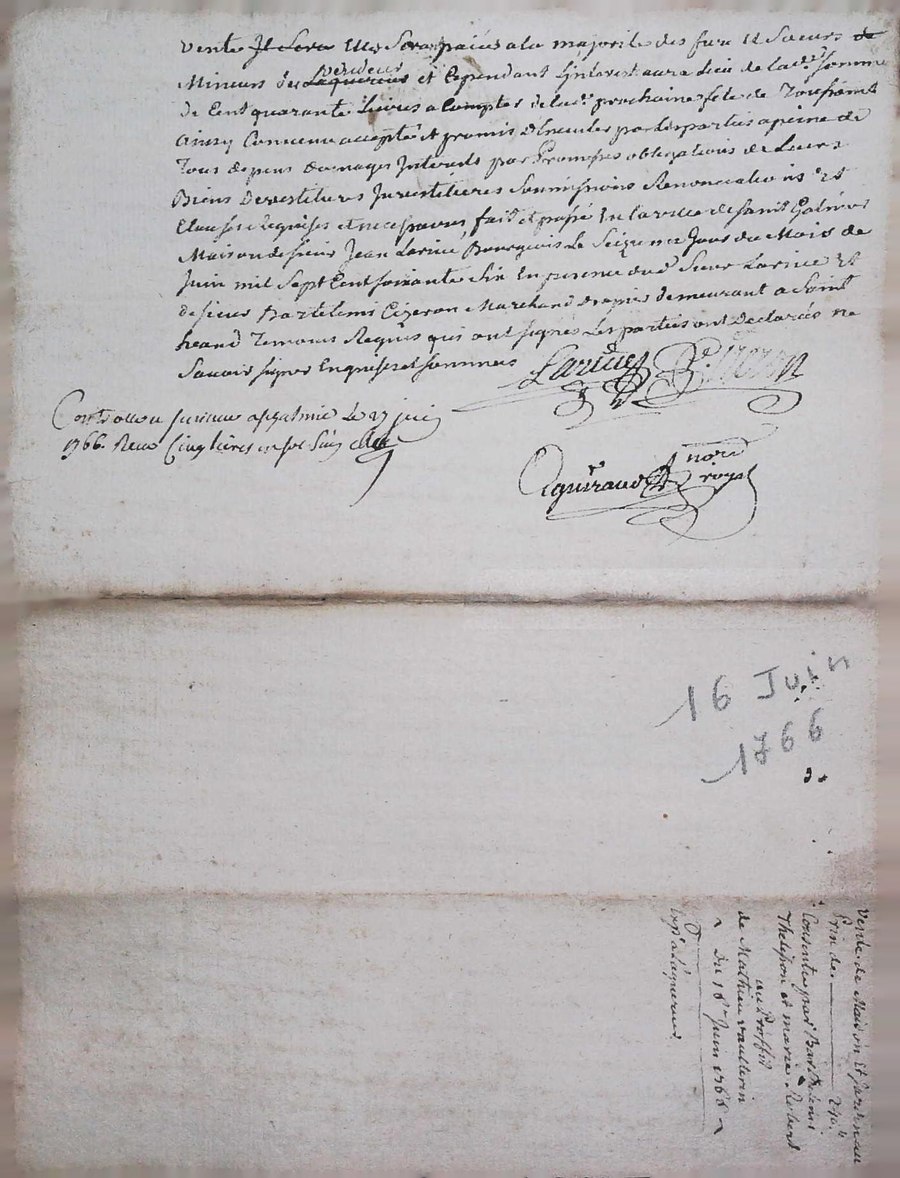 vente Il sera Elles Seront paiées a la majorité des frere Et Soeurs de
Mineurs des Laquereurs vendeurs et Cependant Linterest aura Lieu de lade. somme
de Cent quarante Livres a Compter de la prochaine fête de Toussaint
ainsy Convenu accepté et promis Executer par les parties a peine de
Tous depens domages Interets par Promesses obligations de Leurs
Biens Devestitures Investitures Soumissions Renonciations Et
Clauses requises et necessaires, fait et passé En la ville de Saint Galmier
Maison de sieur Jean Larüe Bourgeois Le Seizieme Jour du Mois de
Juin mil Sept Cent soixante Six En presence dud. Sieur Larue Et
de sieur Bartelemi Cizeron Marchand drapier demeurant a Saint
heand Temoins Requis qui ont signés Les parties ont Declarées ne
Savoir signer Enquises et sommées
Larüe Cizeron
Controllé a St Galmie le 27 juin
1766. Receu Cinq livres sol Six
Aguiraud nore royal
16 Juin
1766
Vente de Maison Et Jardin au
Prix de 240 #
Consentie par Bartelemi
Thelisson et marie Robert
au Proffit
de Mathieu vaullerin
Du 16e Juin 1766
Expé a Laquereur